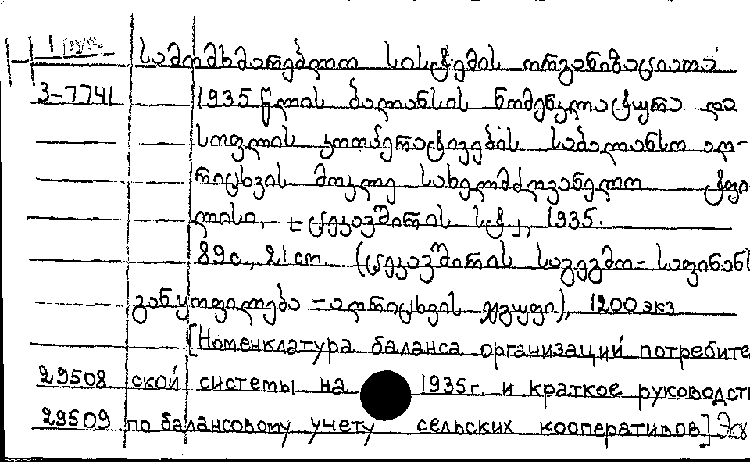 1 груз.
სამომხმარებლო სისტემის ორგანიზაციათა
3-7741 1935 წლის ბალანსის ნომენკლატურა და
სოფლის კოოპერატივების საბალანსო აღ-
რიცხვის მოკლე სახელმძღვანელო ტფი
ლისი, ცეკავშირის სტ., 1935.
89 с., 21 cm. (ცეკავშირის საგეგმო-საფინანს
განყოფილება - აღრიცხვის ჯგუფი), 1200 экз
[Номенклатура баланса организаций потребите
29508 ской системы на 1935г. и краткое руководст
29509 по балансовому учету сельских кооперативов]